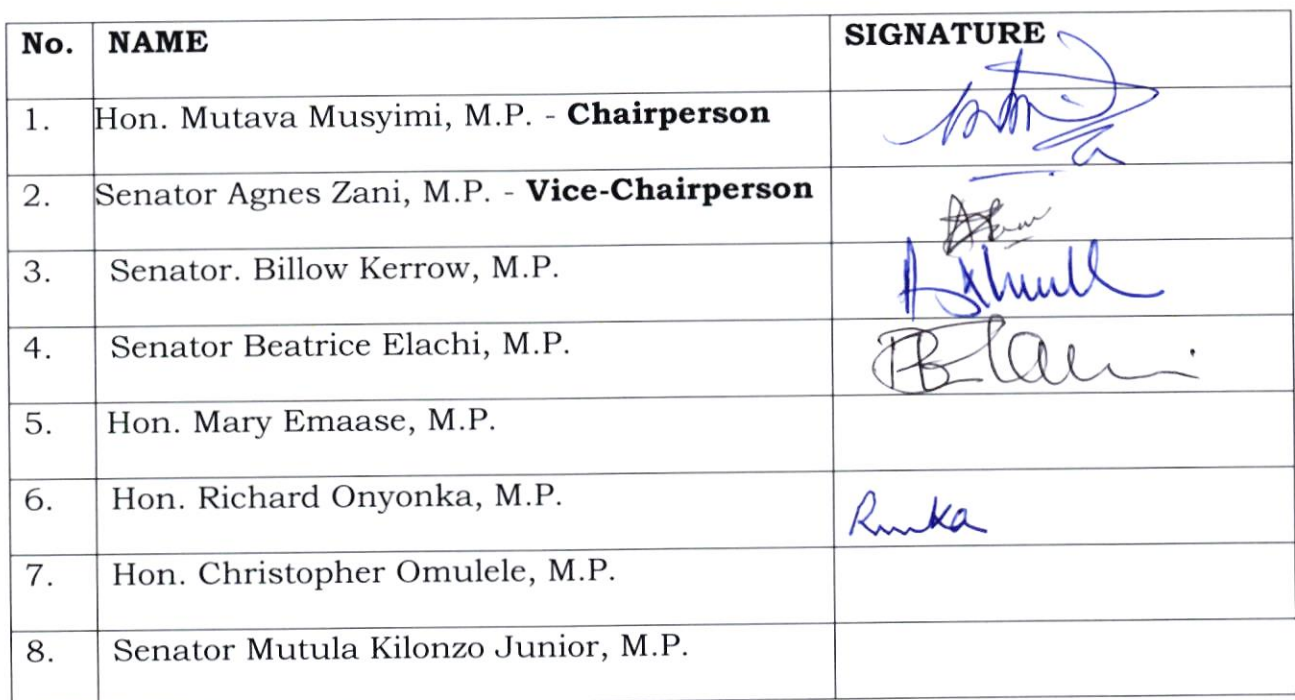 No. NAME SIGNATURE
1. Hon. Mutava Musyimi, M.P. - Chairperson
2. Senator Agnes Zani, M.P. - Vice-Chairperson
3. Senator. Billow Kerrow, M.P.
4. Senator Beatrice Elachi, M.P.
5. Hon. Mary Emaase, M.P.
6. Hon. Richard Onyonka, M.P.
7. Hon. Christopher Omulele, M.P.
8. Senator Mutula Kilonzo Junior, M.P.